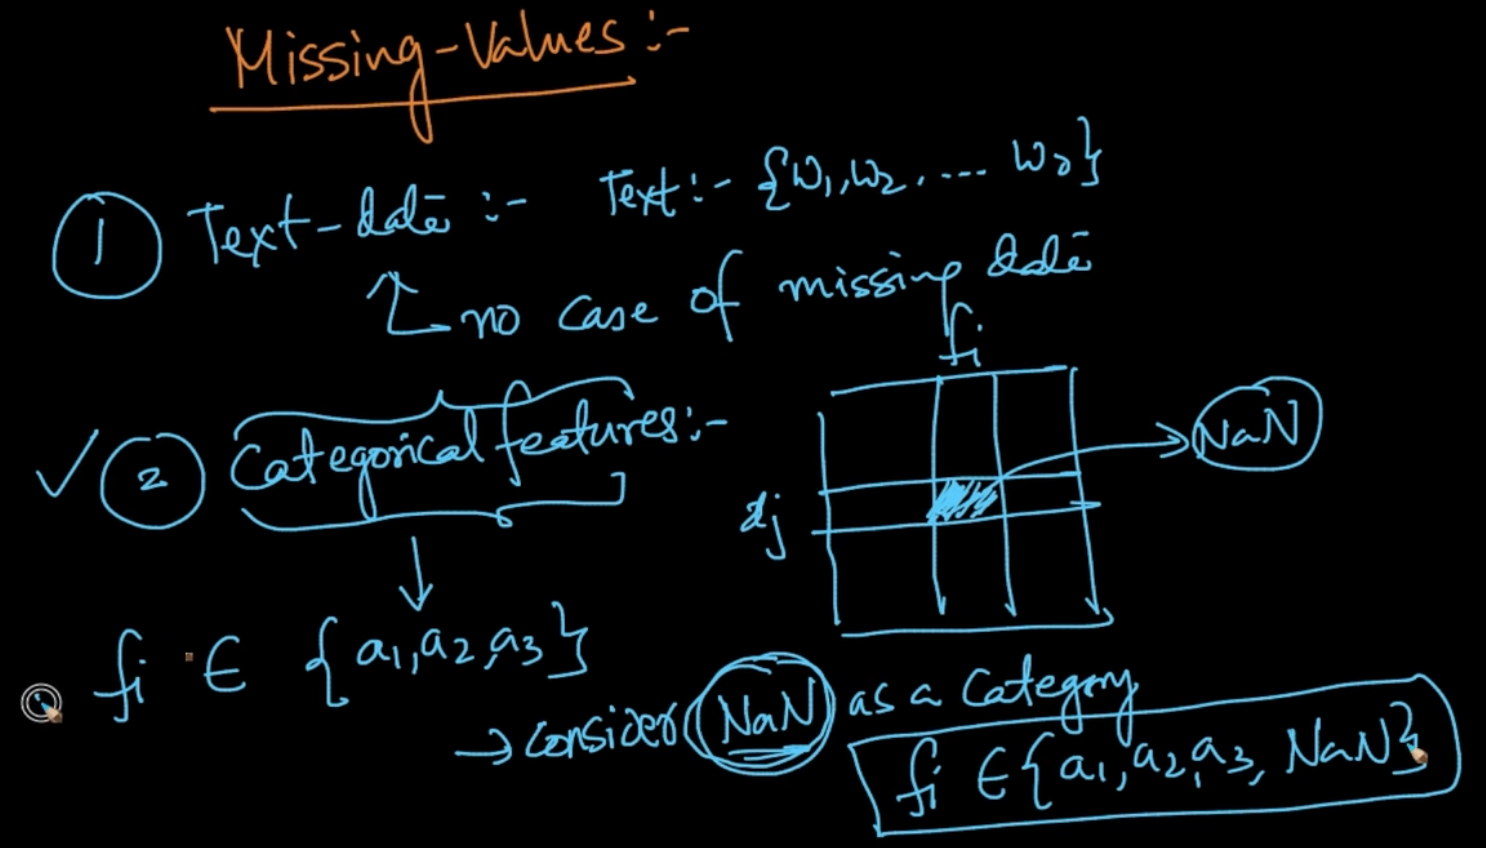 Missing-Values:-
1 Text-data:- Text:- {w1, w2, .... wn}
no case of missing data
2 Categorical features:-
fi
NaN
dj
fi ∈ {a1, a2, a3}
→ consider NaN as a category
fi ∈ {a1, a2, a3, NaN}